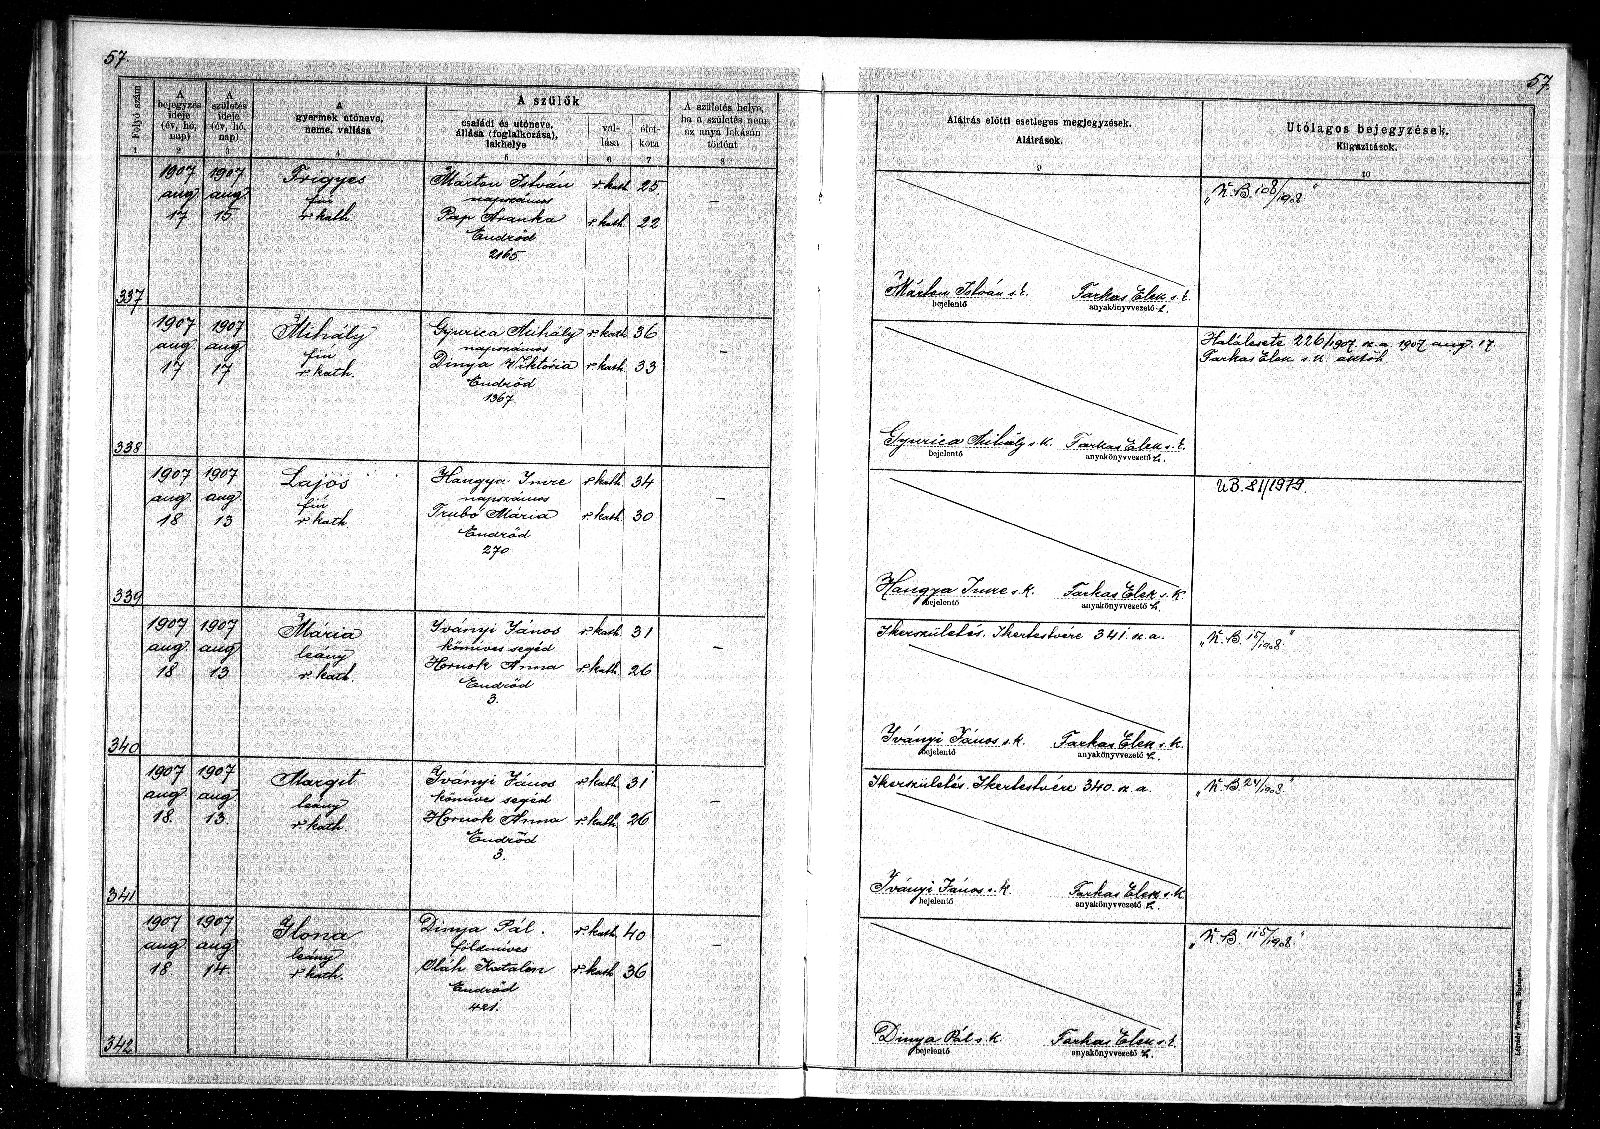 57.
57
Folyó szám
A bejegyzés ideje (év, hó, nap)
A születés ideje (év, hó, nap)
A gyermek utóneve, neme, vallása
A szülők
családi és utóneve, állása (foglalkozása), lakhelye
vallása
életkora
A születés helye, ha a születés nem az anya lakásán történt
Aláírás előtti esetleges megjegyzések.
Aláírások.
Utólagos bejegyzések.
Kiigazítások.
1 2 3 4 5 6 7 8 9 10
337
1907 aug 17
1907 aug. 15
Frigyes
fiú
r. kath.
Márton István r. kath 25
napszámos
Pap Aranka r. kath. 22
Endrőd
2165
—
Márton István s. k. Farkas Elek s. k.
bejelentő anyakönyvvezető h.
„K. B. 108/1908"
338
1907 aug. 17
1907 aug 17
Mihály
fiú
r. kath.
Gyurica Mihály r. kath 36
napszámos
Dinya Viktória r. kath 33
Endrőd
1367.
—
Gyurica Mihály s. k. Farkas Elek s. k.
bejelentő anyakönyvvezető h.
Halálesete 226/1907. sz. a. 1907 aug. 17
Farkas Elek s. k. aktóh
339
1907 aug. 18
1907 aug. 13
Lajos
fiú
r. kath.
Hangya Imre r. kath 34
napszámos
Trubó Mária r. kath. 30
Endrőd
270
—
Hangya Imre s. k. Farkas Elek s. k
bejelentő anyakönyvvezető h.
UB. 81/1979.
340
1907 aug. 18
1907 aug 13
Mária
leány
r. kath.
Iványi János r. kath 31
kőmives segéd
Hornok Anna r. kath 26
Endrőd
3.
—
Ikerszületés. Ikertestvére 341. sz. a.
Iványi János s. k. Farkas Elek s. k.
bejelentő anyakönyvvezető h.
„K. B. 15/1908"
341
1907 aug. 18.
1907 aug 13
Margit
leány
r. kath
Iványi János r. kath. 31
kőmives segéd
Hornok Anna r. kath. 26
Endrőd
3.
—
Ikerszületés. Ikertestvére 340. sz. a.
Iványi János s. k. Farkas Elek s. k
bejelentő anyakönyvvezető h.
„K. B. 24/1908."
342
1907 aug. 18
1907 aug. 14.
Ilona
leány
r. kath.
Dinya Pál. r. kath. 40
földmives
Oláh Katalin r. kath 36
Endrőd
421.
—
Dinya Pál s. k Farkas Elek s. k.
bejelentő anyakönyvvezető h.
„K. B. 115/1908"